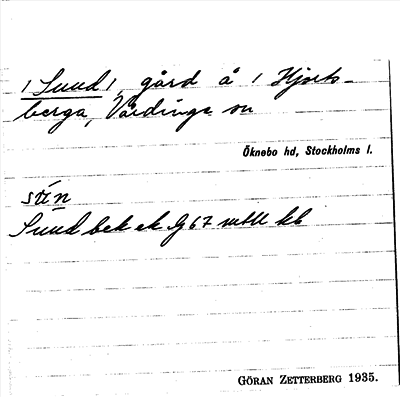 / Sund /, gård å / Hjorts-
berga, Vårdinge sn
Öknebo hd, Stockholms l.
sṹn
Sund bek ek G 67 mtll kb
GÖRAN ZETTERBERG 1935.